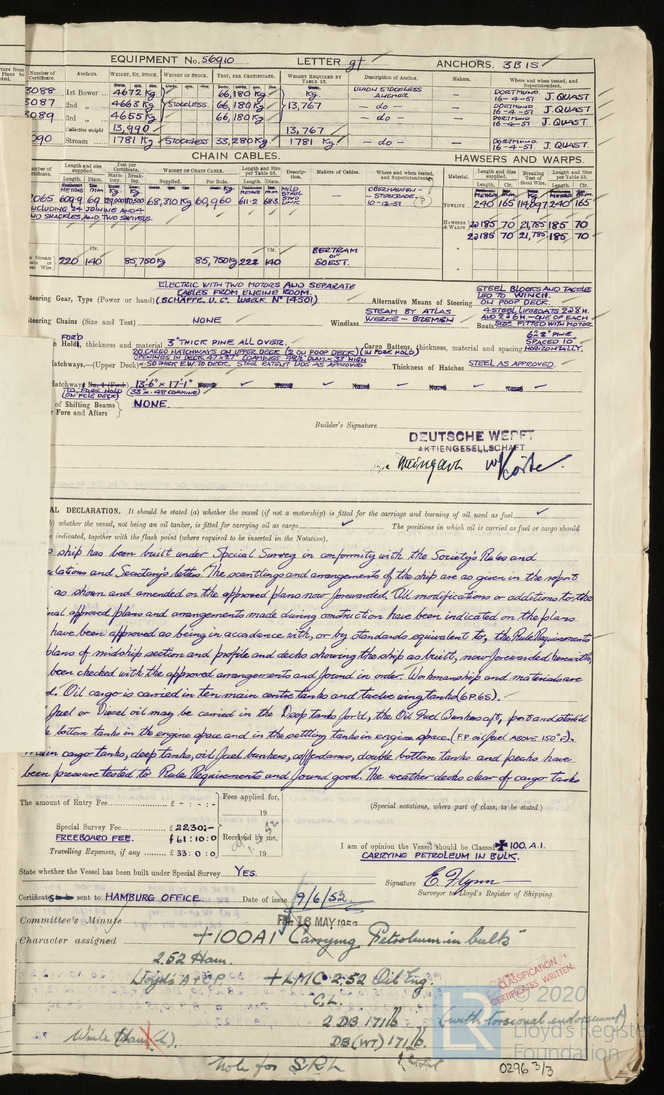 EQUIPMENT No. 56910 LETTER gt ANCHORS. 3 B 1 S
Number of Certificate. Anchors. WEIGHT, EX. STOCK. WEIGHT OF STOCK. TEST, PER CERTIFICATE. WEIGHT REQUIRED BY TABLE 53. Description of Anchor. Makers. Where and when tested, and Superintendent.
3088 1st Bower 4672 Kg 66,180 Kg UNION STOCKLESS ANCHOR — DORTMUND 16-4-51 J. QUAST
3087 2nd „ 4663 Kg STOCKLESS 66,180 Kg 13,767 — do — — DORTMUND 16-4-51 J. QUAST
3089 3rd „ 4655 Kg 66,180 Kg — do — — DORTMUND 16-4-51 J. QUAST
Collective weight 13,990 13,767
090 Stream 1781 Kg STOCKLESS 33,280 Kg 1781 Kg — do — — DORTMUND 16-4-51 J. QUAST
CHAIN CABLES. HAWSERS AND WARPS.
Length and size supplied. Test per Certificate. WEIGHT OF CHAIN CABLE. Length and Size per Table 53. Description. Makers of Cables. Where and when tested, and Superintendent. Material. Length and size supplied. Breaking Test of Steel Wire. Length and Size per Table 53.
Length. Diam. Statutory. Breaking. Supplied. Per Rule. Length. Diam.
2065 609.9 69 68,310 Kg 60,960 611.2 MILD STEEL OBERHAUSEN – STERKRADE 10-12-51 TOWLING 240 165 240 165
INCLUDING 24 JOINING AND 4 END SHACKLES AND TWO SWIVELS. HAWSERS & WARPS 185 70 21,785 185 70
185 70 21,785 185 70
220 140 85,750 Kg 85,750 Kg 222 140 BERTRAM OF SOEST.
Steering Gear, Type (Power or hand) ELECTRIC WITH TWO MOTORS AND SEPARATE CABLES FROM ENGINE ROOM. Alternative Means of Steering STEEL BLOCKS AND TACKLES LED TO WINCH ON POOP DECK.
Steering Chains (Size and Test) NONE Windlass STEAM BY ATLAS WERKE – BREMEN Boats 4 STEEL LIFEBOATS
Hold, thickness and material 3" THICK PINE ALL OVER. Cargo Battens, thickness, material and spacing 6"x2" PINE SPACED 10" HORIZONTALLY.
Hatchways.—(Upper Deck) 20 CARGO HATCHWAYS ON UPPER DECK (2 ON POOP DECK) (IN FORE HOLD) Thickness of Hatches STEEL AS APPROVED.
Hatchways 13-6" x 17-1"
TO FORE HOLD (ON FCLE DECK)
of Shifting Beams or Fore and Afters NONE.
Builder's Signature
DEUTSCHE WERFT
AKTIENGESELLSCHAFT
AL DECLARATION. It should be stated (a) whether the vessel (if not a motorship) is fitted for the carriage and burning of oil used as fuel
whether the vessel, not being an oil tanker, is fitted for carrying oil as cargo The positions in which oil is carried as fuel or cargo should
indicated, together with the flash point (where required to be inserted in the Notation).
ship has been built under Special Survey in conformity with the Society's Rules and
lations and Secretary's letters. The scantlings and arrangements of the ship are as given in the report
as shown and amended on the approved plans now forwarded. All modifications or additions to the
nal approved plans and arrangements made during construction have been indicated on the plans
have been approved as being in accordance with, or by standards equivalent to, the Rule Requirements
plans of midship section and profile and decks showing the ship as built, now forwarded herewith,
been checked with the approved arrangements and found in order. Workmanship and materials are
d. Oil cargo is carried in ten main centre tanks and twelve wing tanks (6P.6S).
fuel or Diesel oil may be carried in the Deep tanks for'd, the Oil Fuel Bunkers aft, port and starb'd
bottom tanks in the engine space and in the settling tanks in engine space. (F.P. oil fuel ABOVE 150°F).
main cargo tanks, deep tanks, oil fuel bunkers, cofferdams, double bottom tanks and peaks have
been pressure tested to Rule Requirements and found good. The weather decks clear of cargo tanks
The amount of Entry Fee £ - : - : - Fees applied for, 19 (Special notations, where part of class, to be stated.)
Special Survey Fee £ 2230:-
FREEBOARD FEE. £ 61:10:0 Received by me,
Travelling Expenses, if any £ 33:0:0 19
I am of opinion the Vessel should be Classed ✠ 100.A.1.
CARRYING PETROLEUM IN BULK.
State whether the Vessel has been built under Special Survey YES.
Signature E. Flynn
Surveyor to Lloyd's Register of Shipping.
Certificate sent to HAMBURG OFFICE. Date of issue 9/6/52.
Committee's Minute FRI. 16 MAY 1952
Character assigned +100A1 "Carrying Petroleum in bulk"
2.52 Ham.
Lloyd's A & C.P. +LMC 2.52 Oil Eng.
CL.
2 DB 171 lb (with torsional endorsement)
DB (WT) 171 lb.
Note for SRL
CLASSIFICATION CERTIFICATES WRITTEN.
© 2020
LR
Lloyd's Register
Foundation
0296 3/3